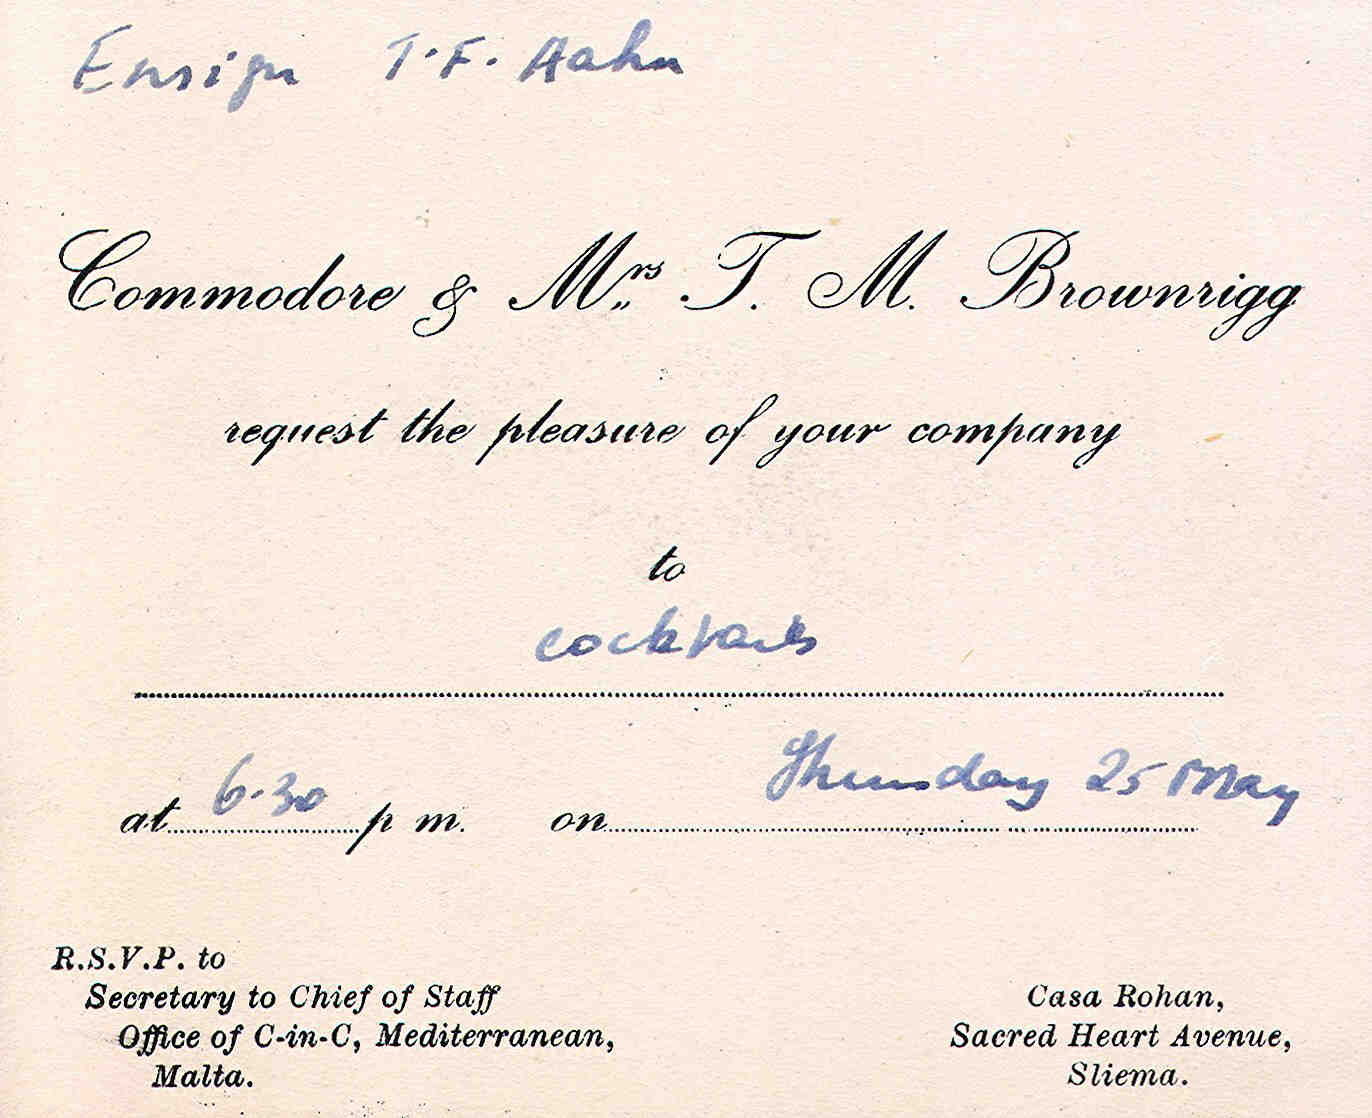 Ensign T.F. Hahn
Commodore & Mrs T. M. Brownrigg
request the pleasure of your company
to
cocktails
at 6.30 p m. on Thursday 25 May
R.S.V.P. to
Secretary to Chief of Staff
Office of C-in-C, Mediterranean,
Malta.
Casa Rohan,
Sacred Heart Avenue,
Sliema.